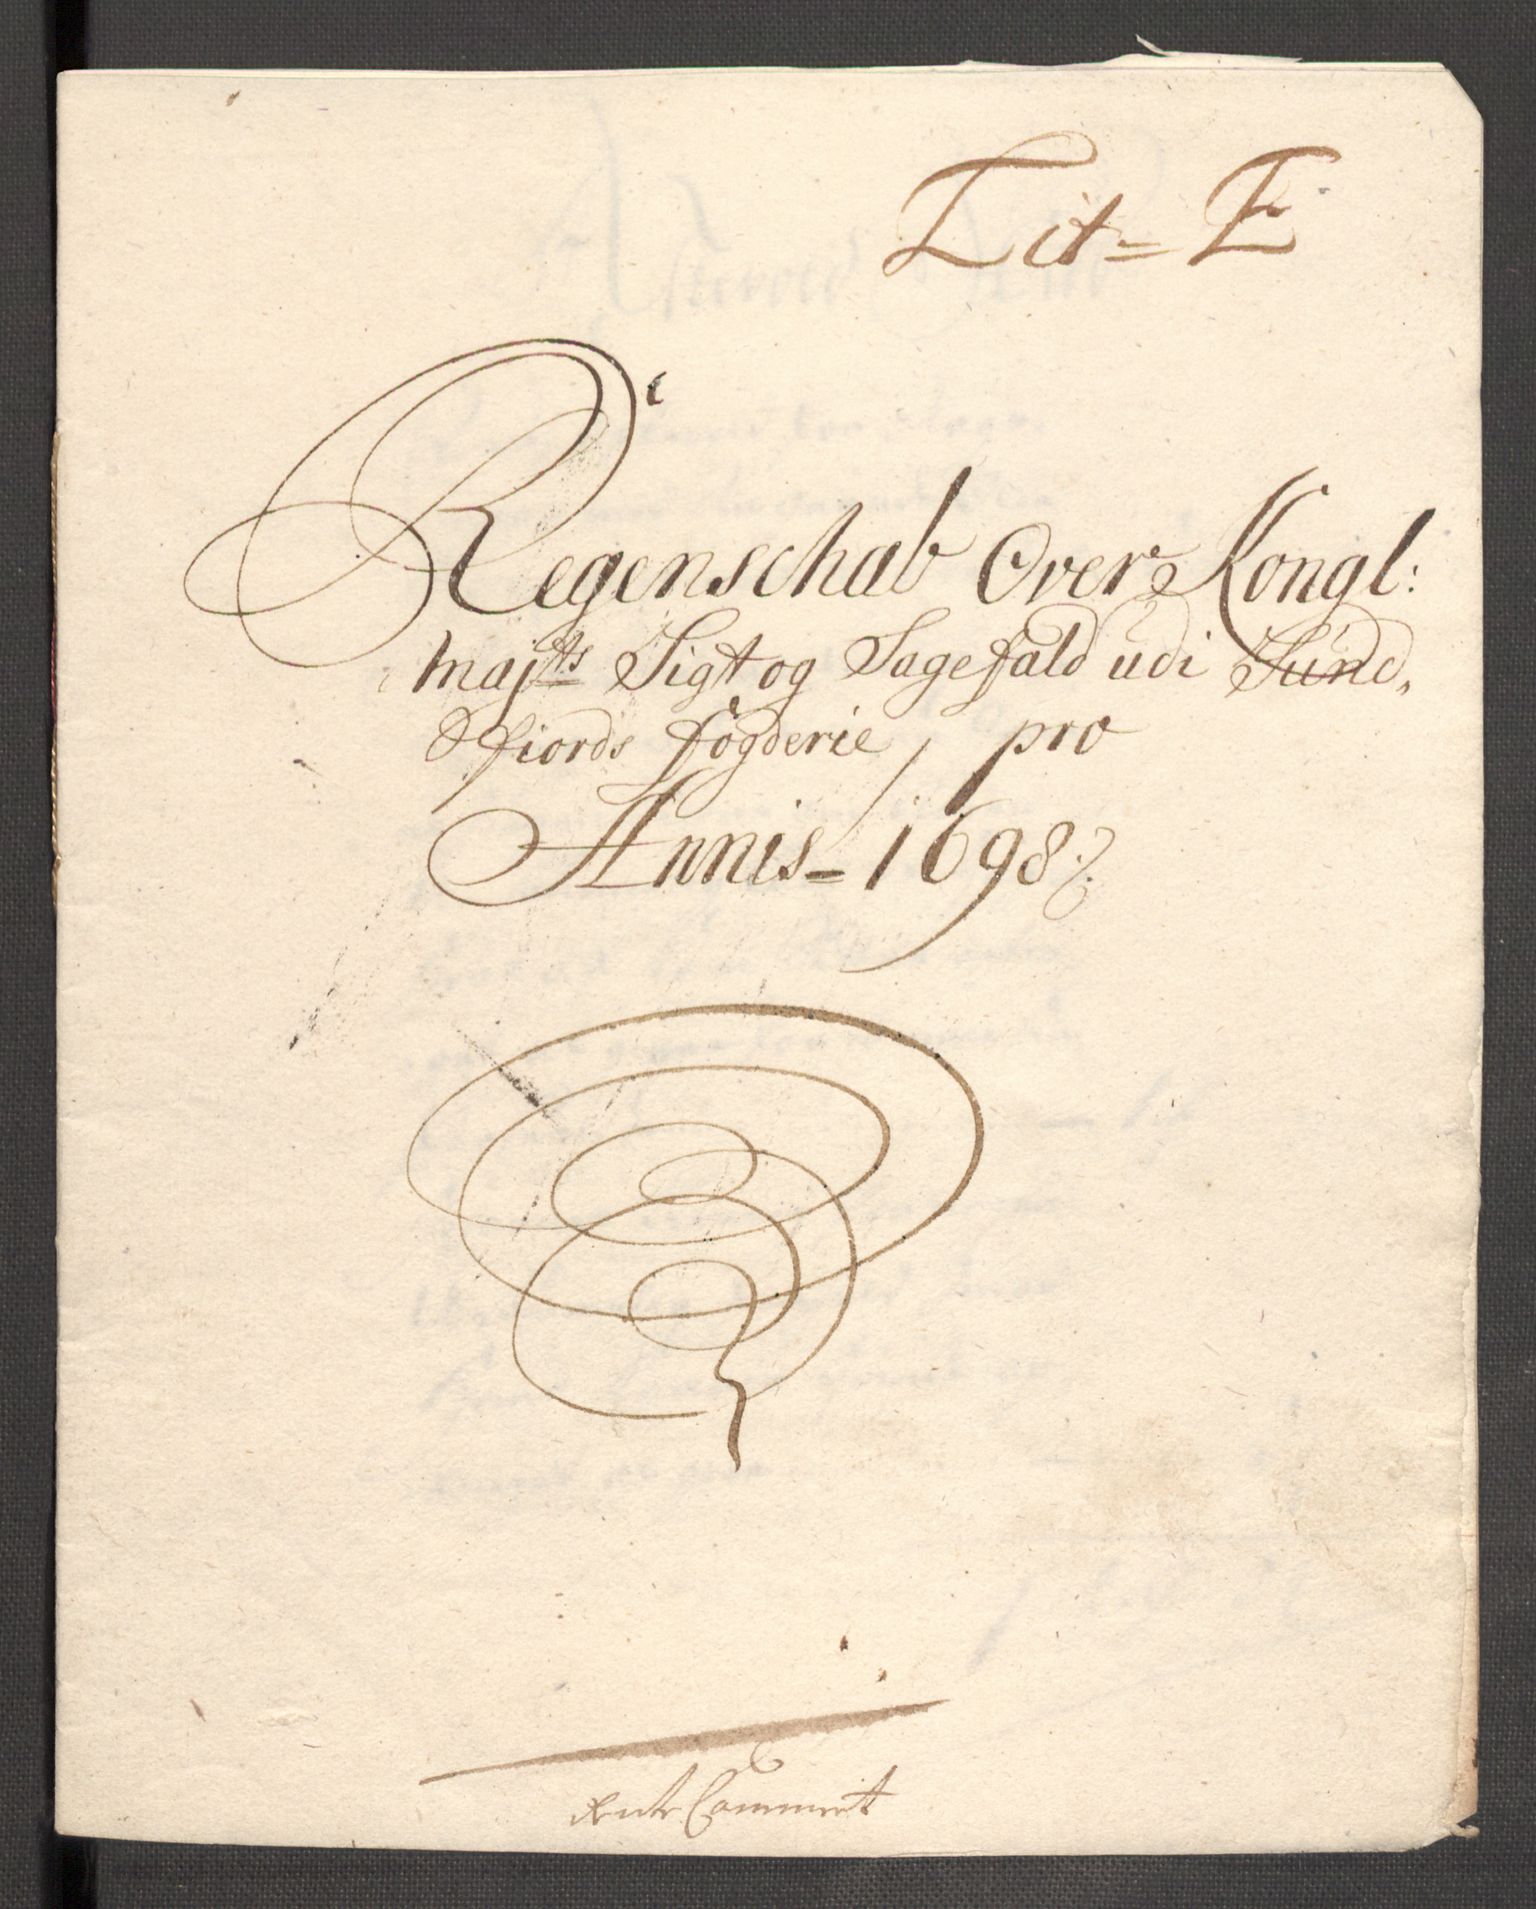 Lit= E
Regenschab Over Kongl:
Maj:ts Sigt og Sagefald udi Sund,
fiords fogderie, pro
Annis= 1698
Rente Cammerit